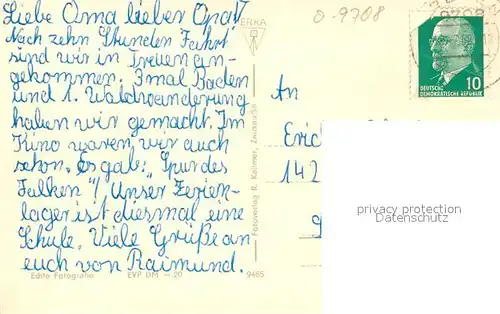 Liebe Oma lieber Opa!
Nach zehn Stunden Fahrt
sind wir in Treuen an-
gekommen. 3mal Baden
und 1. Waldwanderung
haben wir gemacht. Im
Kino waren wir auch
schon. Es gab: „Spur des
Falken"! Unser Ferien-
lager ist diesmal eine
Schule. Viele Grüße an
euch von Raimund.
Echte Fotografie EVP DM -.20 9465
ERKA
Fotoverlag R. Kallmer, Zwickau/Sa
0-9708
DEUTSCHE
DEMOKRATISCHE REPUBLIK
10
An
Erich
142
privacy protection
Datenschutz